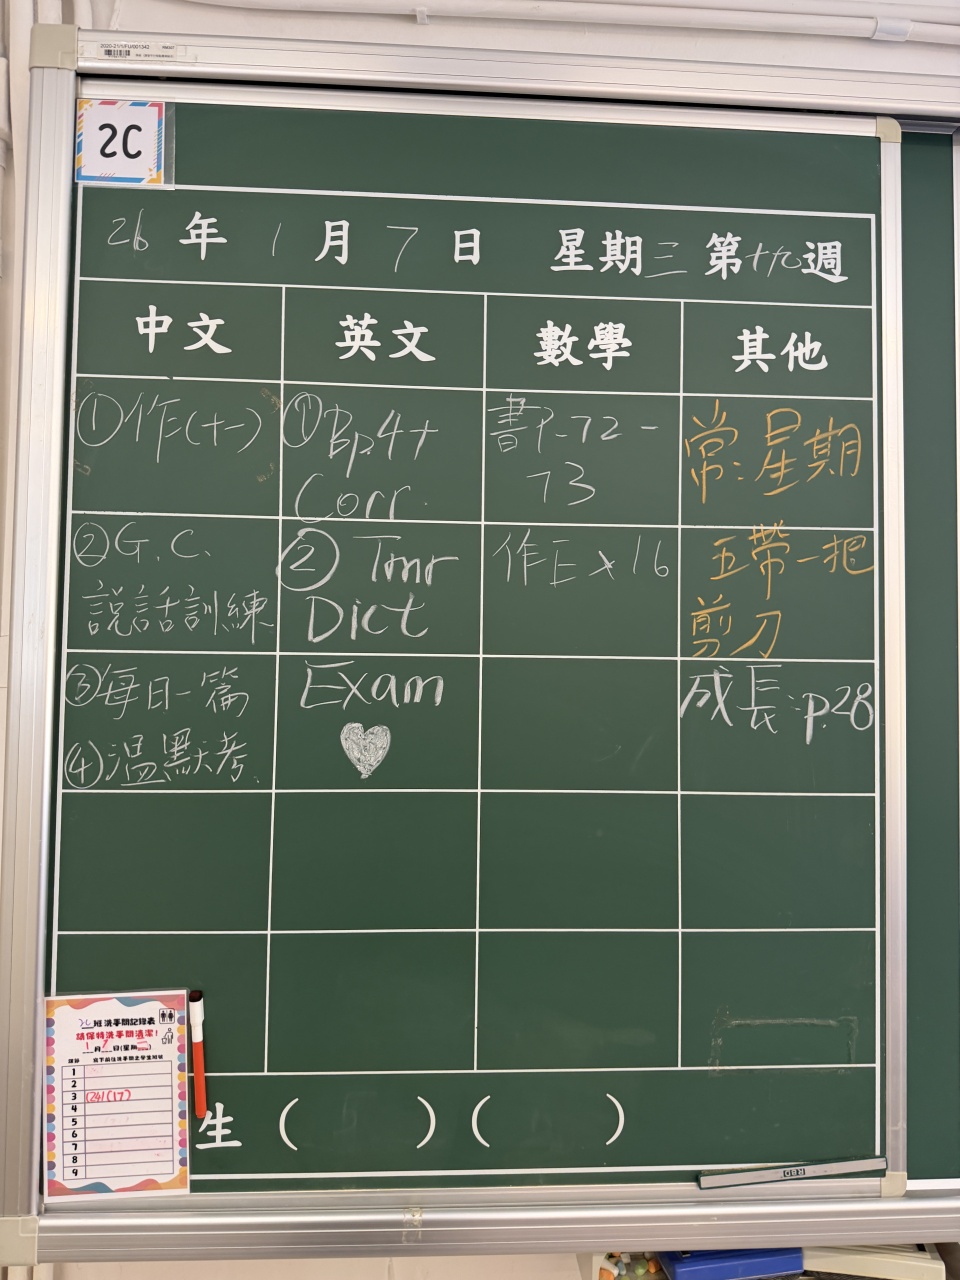 2020-21/1/FU/001342
2C
26年1月7日 星期三 第十九週
中文 英文 數學 其他
①作(十一)
②G.C.
說話訓練
③每日一篇
④溫默考.
①Bp.4+
Corr.
②Tmr
Dict
Exam
書P.72-
73
作E×16
常:星期
五帶一把
剪刀
成長:p.28
生( )( )
2C班洗手間記錄表
請保持洗手間清潔!
1月7日(星期三)
1
2
3 (24)(17)
4
5
6
7
8
9
RBD